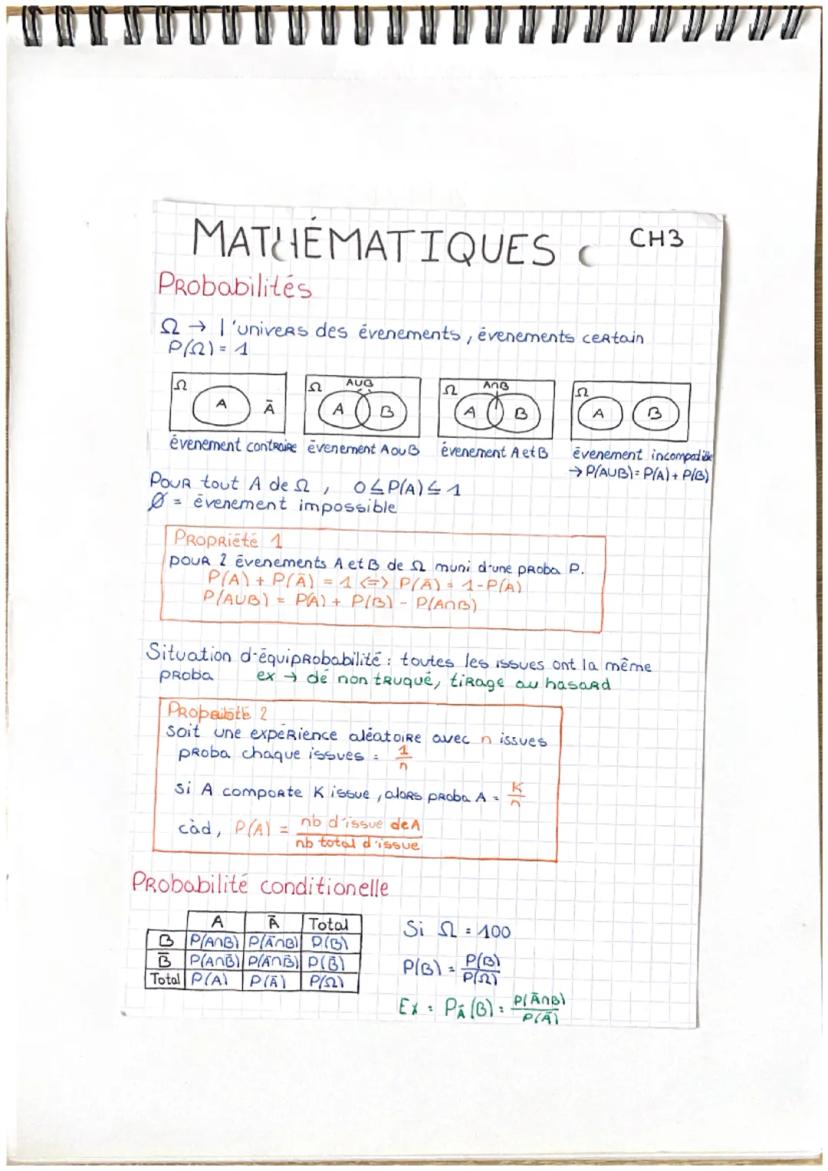 MATHÉMATIQUES
CH3
Probabilités
Ω → l'univers des évenements, évenements certain
P(Ω) = 1
Ω A Ā
Ω A∪B A B
Ω A∩B A B
Ω A B
évenement contraire évenement A ou B évenement A et B évenement incompatible
→ P(A∪B) = P(A) + P(B)
Pour tout A de Ω, 0 ≤ P(A) ≤ 1
Ø = évenement impossible
Propriété 1
pour 2 évenements A et B de Ω muni d'une proba P.
P(A) + P(Ā) = 1 <=> P(Ā) = 1 - P(A)
P(A∪B) = P(A) + P(B) - P(A∩B)
Situation d'équiprobabilité : toutes les issues ont la même
proba ex → dé non truqué, tirage au hasard
2
soit une expérience aléatoire avec n issues
proba chaque issues = 1/n
si A comporte K issue, alors proba A = K/n
càd, P(A) = nb d'issue de A / nb total d'issue
Probabilité conditionelle
A Ā Total
B P(A∩B) P(Ā∩B) P(B)
B̄ P(A∩B̄) P(Ā∩B̄) P(B̄)
Total P(A) P(Ā) P(Ω)
Si Ω = 100
P(B) = P(B)/P(Ω)
Ex : PĀ(B) = P(Ā∩B)/P(Ā)